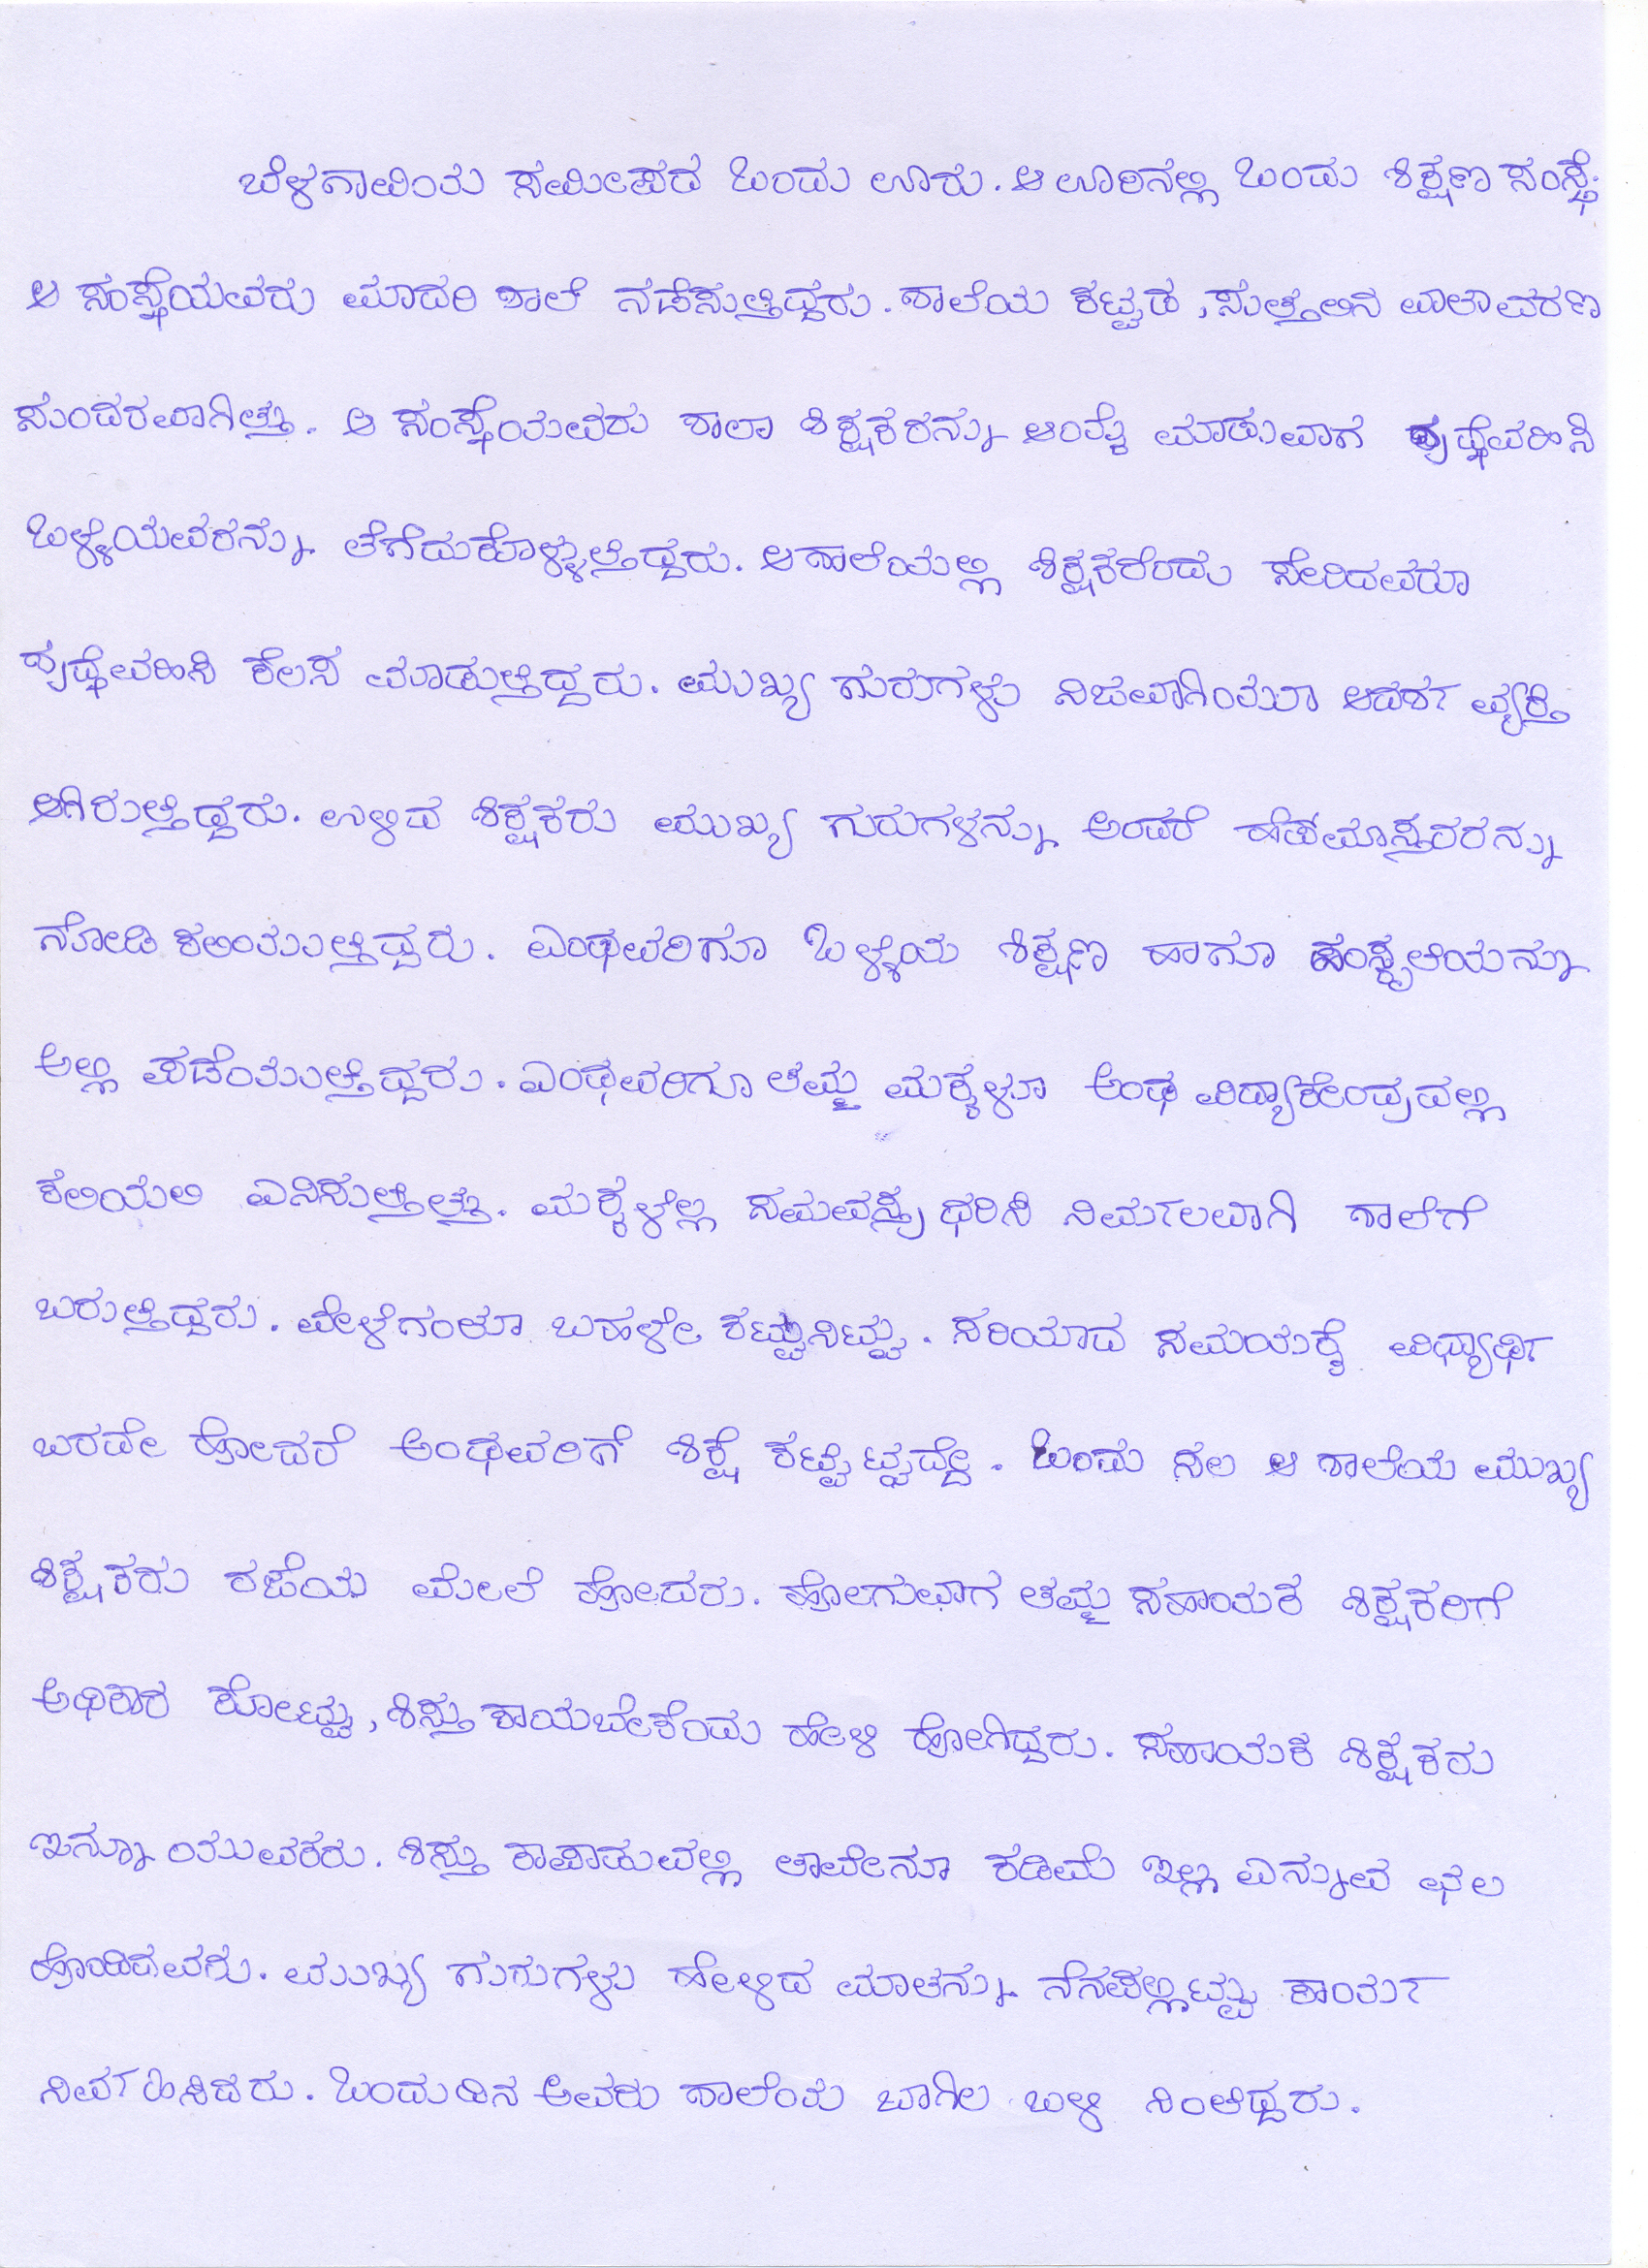 ಬೆಳಗಾವಿಯ ಸಮೀಪದ ಒಂದು ಊರು. ಆ ಊರಿನಲ್ಲಿ ಒಂದು ಶಿಕ್ಷಣ ಸಂಸ್ಥೆ.
ಆ ಸಂಸ್ಥೆಯವರು ಮಾದರಿ ಶಾಲೆ ನಡೆಸುತ್ತಿದ್ದರು. ಶಾಲೆಯ ಕಟ್ಟಡ, ಸುತ್ತಲಿನ ವಾತಾವರಣ
ಸುಂದರವಾಗಿತ್ತು. ಆ ಸಂಸ್ಥೆಯವರು ಶಾಲಾ ಶಿಕ್ಷಕರನ್ನು ಆಯ್ಕೆ ಮಾಡುವಾಗ ಶ್ರದ್ಧೆವಹಿಸಿ
ಒಳ್ಳೆಯವರನ್ನು ತೆಗೆದುಕೊಳ್ಳುತ್ತಿದ್ದರು. ಆ ಶಾಲೆಯಲ್ಲಿ ಶಿಕ್ಷಕರೆಂದು ಸೇರಿದವರೂ
ಶ್ರದ್ಧೆವಹಿಸಿ ಕೆಲಸ ಮಾಡುತ್ತಿದ್ದರು. ಮುಖ್ಯ ಗುರುಗಳು ನಿಜವಾಗಿಯೂ ಆದರ್ಶ ವ್ಯಕ್ತಿ
ಆಗಿರುತ್ತಿದ್ದರು. ಉಳಿದ ಶಿಕ್ಷಕರು ಮುಖ್ಯ ಗುರುಗಳನ್ನು ಅಂದರೆ ಹೆಡಮಾಸ್ತರರನ್ನು
ನೋಡಿ ಕಲಿಯುತ್ತಿದ್ದರು. ಎಂಥವರಿಗೂ ಒಳ್ಳೆಯ ಶಿಕ್ಷಣ ಹಾಗೂ ಸಂಸ್ಕೃತಿಯನ್ನು
ಅಲ್ಲಿ ಪಡೆಯುತ್ತಿದ್ದರು. ಎಂಥವರಿಗೂ ತಮ್ಮ ಮಕ್ಕಳೂ ಅಂಥ ವಿದ್ಯಾಕೇಂದ್ರವಲ್ಲಿ
ಕಲಿಯಲಿ ಎನಿಸುತ್ತಿತ್ತು. ಮಕ್ಕಳೆಲ್ಲ ಸಮವಸ್ತ್ರ ಧರಿಸಿ ನಿರ್ಮಲವಾಗಿ ಶಾಲೆಗೆ
ಬರುತ್ತಿದ್ದರು. ವೇಳೆಗಂತೂ ಬಹಳೇ ಕಟ್ಟುನಿಟ್ಟು. ಸರಿಯಾದ ಸಮಯಕ್ಕೆ ವಿಧ್ಯಾರ್ಥಿ
ಬರದೇ ಹೋದರೆ ಅಂಥವರಿಗೆ ಶಿಕ್ಷೆ ಕಟ್ಟಿಟ್ಟದ್ದೇ. ಒಂದು ಸಲ ಆ ಶಾಲೆಯ ಮುಖ್ಯ
ಶಿಕ್ಷಕರು ರಜೆಯ ಮೇಲೆ ಹೋದರು. ಹೋಗುವಾಗ ತಮ್ಮ ಸಹಾಯಕ ಶಿಕ್ಷಕರಿಗೆ
ಅಧಿಕಾರ ಕೊಟ್ಟು, ಶಿಸ್ತು ಕಾಯಬೇಕೆಂದು ಹೇಳಿ ಹೋಗಿದ್ದರು. ಸಹಾಯಕ ಶಿಕ್ಷಕರು
ಇನ್ನೂ ಯುವಕರು. ಶಿಸ್ತು ಕಾಪಾಡುವಲ್ಲಿ ತಾವೇನೂ ಕಡಿಮೆ ಇಲ್ಲ ಎನ್ನುವ ಛಲ
ಹೊಂದಿದವರು. ಮುಖ್ಯ ಗುರುಗಳು ಹೇಳಿದ ಮಾತನ್ನು ನೆನಪಿಲ್ಲಿಟ್ಟು ಕಾರ್ಯ
ನಿರ್ವಹಿಸಿದರು. ಒಂದು ದಿನ ಅವರು ಶಾಲೆಯ ಬಾಗಿಲ ಬಳಿ ನಿಂತಿದ್ದರು.